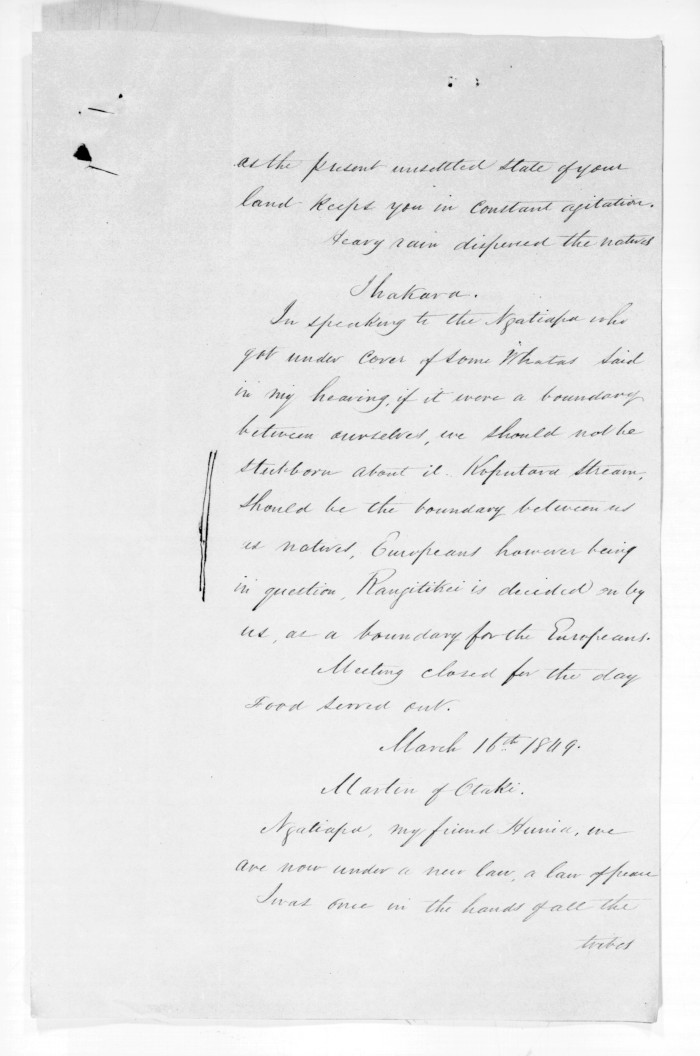 as the present unsettled state of your
land keeps you in constant agitation.
Heavy rain dispersed the natives
Ihakara.
In speaking to the Ngatiapa who
got under cover of some Whatas said
in my hearing, if it were a boundary
between ourselves, we should not be
stubborn about it. Koputara stream,
should be the boundary between us
as natives, Europeans however being
in question, Rangitikei is decided on by
us, as a boundary for the Europeans.
Meeting closed for the day
Food served out.
March 16th 1849.
Martin of Otaki.
Ngatiapa, my friend Hunia, we
are now under a new law, a law of peace
I was once in the hands of all the
tribes